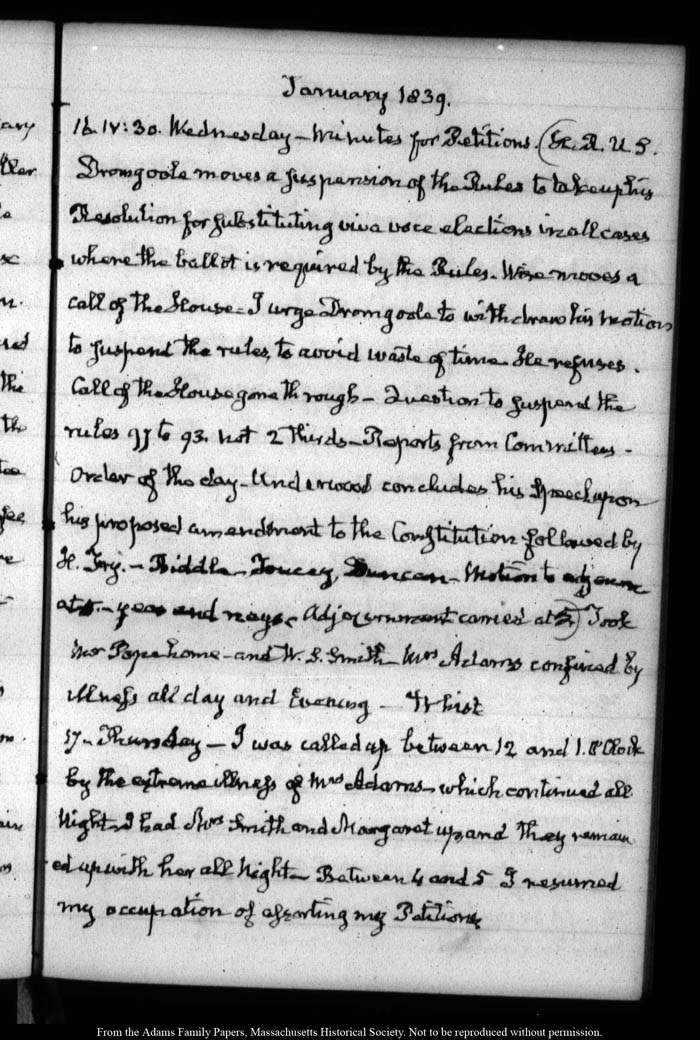 January 1839.
16. IV:30. Wednesday – Minutes for Petitions. (H. R. U S.
Dromgoole moves a suspension of the Rules to take up his
Resolution for substituting viva voce elections in all cases
where the ballot is required by the Rules. Wise moves a
call of the House – I urge Dromgoole to withdraw his motion
to suspend the rules, to avoid waste of time. He refuses.
Call of the House gone through – Question to suspend the
rules 97 to 93. not 2 thirds – Reports from Committees –
Order of the day – Underwood concludes his Speech upon
his proposed amendment to the Constitution followed by
– Biddle – Toucey, Duncan – Motion to adjourn
at – yeas and nays – Adjournment carried at 5) Took
Mr Pope home – and W. S. Smith – Mrs Adams confined by
illness all day and Evening – Whist
17. Thursday – I was called up between 12 and 1. O'Clock
by the extreme illness of Mrs Adams – which continued all
Night – I had Mrs Smith and Margaret up and they remain
ed up with her all Night – Between 4 and 5 I resumed
my occupation of assorting my Petitions
ary
the
n.
the
the
From the Adams Family Papers, Massachusetts Historical Society. Not to be reproduced without permission.